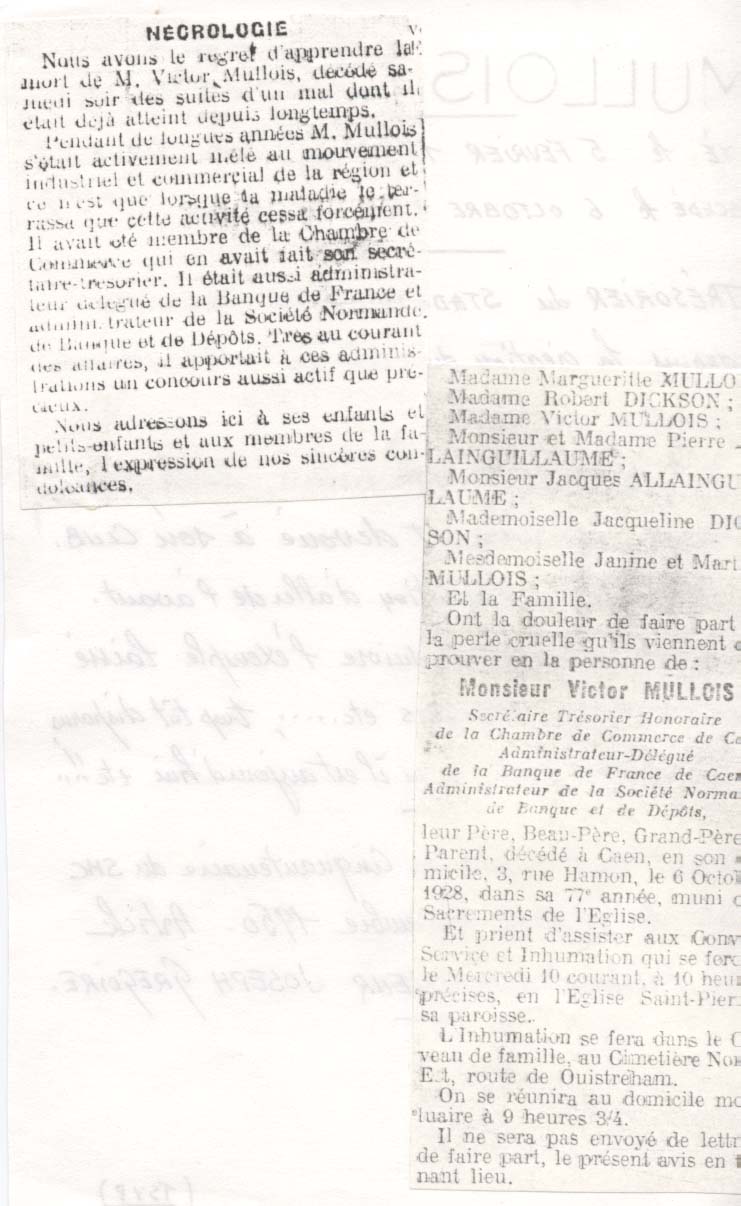 NÉCROLOGIE
Nous avons le regret d'apprendre la
mort de M. Victor Mullois, décédé sa-
medi soir des suites d'un mal dont il
était déjà atteint depuis longtemps.
Pendant de longues années M. Mullois
s'était activement mêlé au mouvement
industriel et commercial de la région et
ce n'est que lorsque la maladie le ter-
rassa que cette activité cessa forcément.
Il avait été membre de la Chambre de
Commerce qui en avait fait son secré-
taire-trésorier. Il était aussi administra-
teur délégué de la Banque de France et
admini trateur de la Société Normande
de Banque et de Dépôts. Très au courant
des affaires, il apportait à ces adminis-
trations un concours aussi actif que pré-
cieux.
Nous adressons ici à ses enfants et
petits-enfants et aux membres de la fa-
mille, l'expression de nos sincères con-
doléances.
Madame Margueritte MULLO
Madame Robert DICKSON ;
Madame Victor MULLOIS ;
Monsieur et Madame Pierre
LAINGUILLAUME ;
Monsieur Jacques ALLAINGU
LAUME ;
Mademoiselle Jacqueline DIC
SON ;
Mesdemoiselle Janine et Mart
MULLOIS ;
Et la Famille.
Ont la douleur de faire part
la perte cruelle qu'ils viennent
prouver en la personne de :
Monsieur Victor MULLOIS
Secrétaire Trésorier Honoraire
de la Chambre de Commerce de Ca
Administrateur-Délégué
de la Banque de France de Caen
Administrateur de la Société Norma
de Banque et de Dépôts,
leur Père, Beau-Père, Grand-Père
Parent, décédé à Caen, en son
micile, 3, rue Hamon, le 6 Octo
1928, dans sa 77e année, muni
Sacrements de l'Eglise.
Et prient d'assister aux Conv
Service et Inhumation qui se fero
le Mercredi 10 courant, à 10 heur
précises, en l'Eglise Saint-Pier
sa paroisse.
L'Inhumation se fera dans le C
veau de famille, au Cimetière Nor
E t, route de Ouistreham.
On se réunira au domicile mo
tuaire à 9 heures 3/4.
Il ne sera pas envoyé de lettr
de faire part, le présent avis en t
nant lieu.